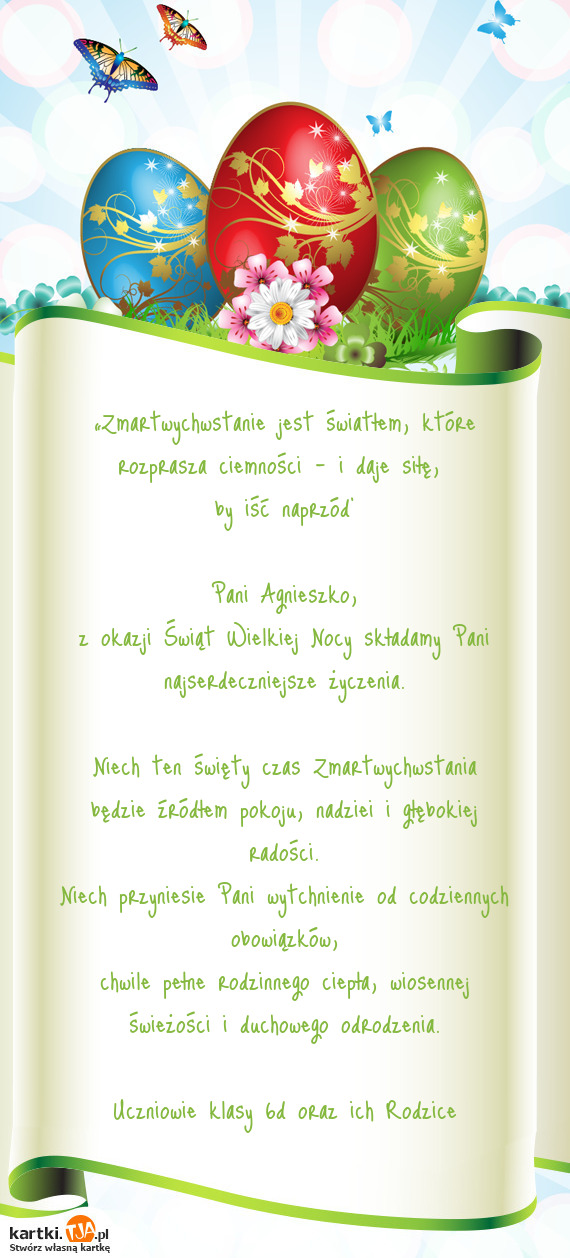 „Zmartwychwstanie jest światłem, które
rozprasza ciemności – i daje siłę,
by iść naprzód"
Pani Agnieszko,
z okazji Świąt Wielkiej Nocy składamy Pani
najserdeczniejsze życzenia.
Niech ten święty czas Zmartwychwstania
będzie źródłem pokoju, nadziei i głębokiej
radości.
Niech przyniesie Pani wytchnienie od codziennych
obowiązków,
chwile pełne rodzinnego ciepła, wiosennej
świeżości i duchowego odrodzenia.
Uczniowie klasy 6d oraz ich Rodzice
kartki.TJA.pl
Stwórz własną kartkę